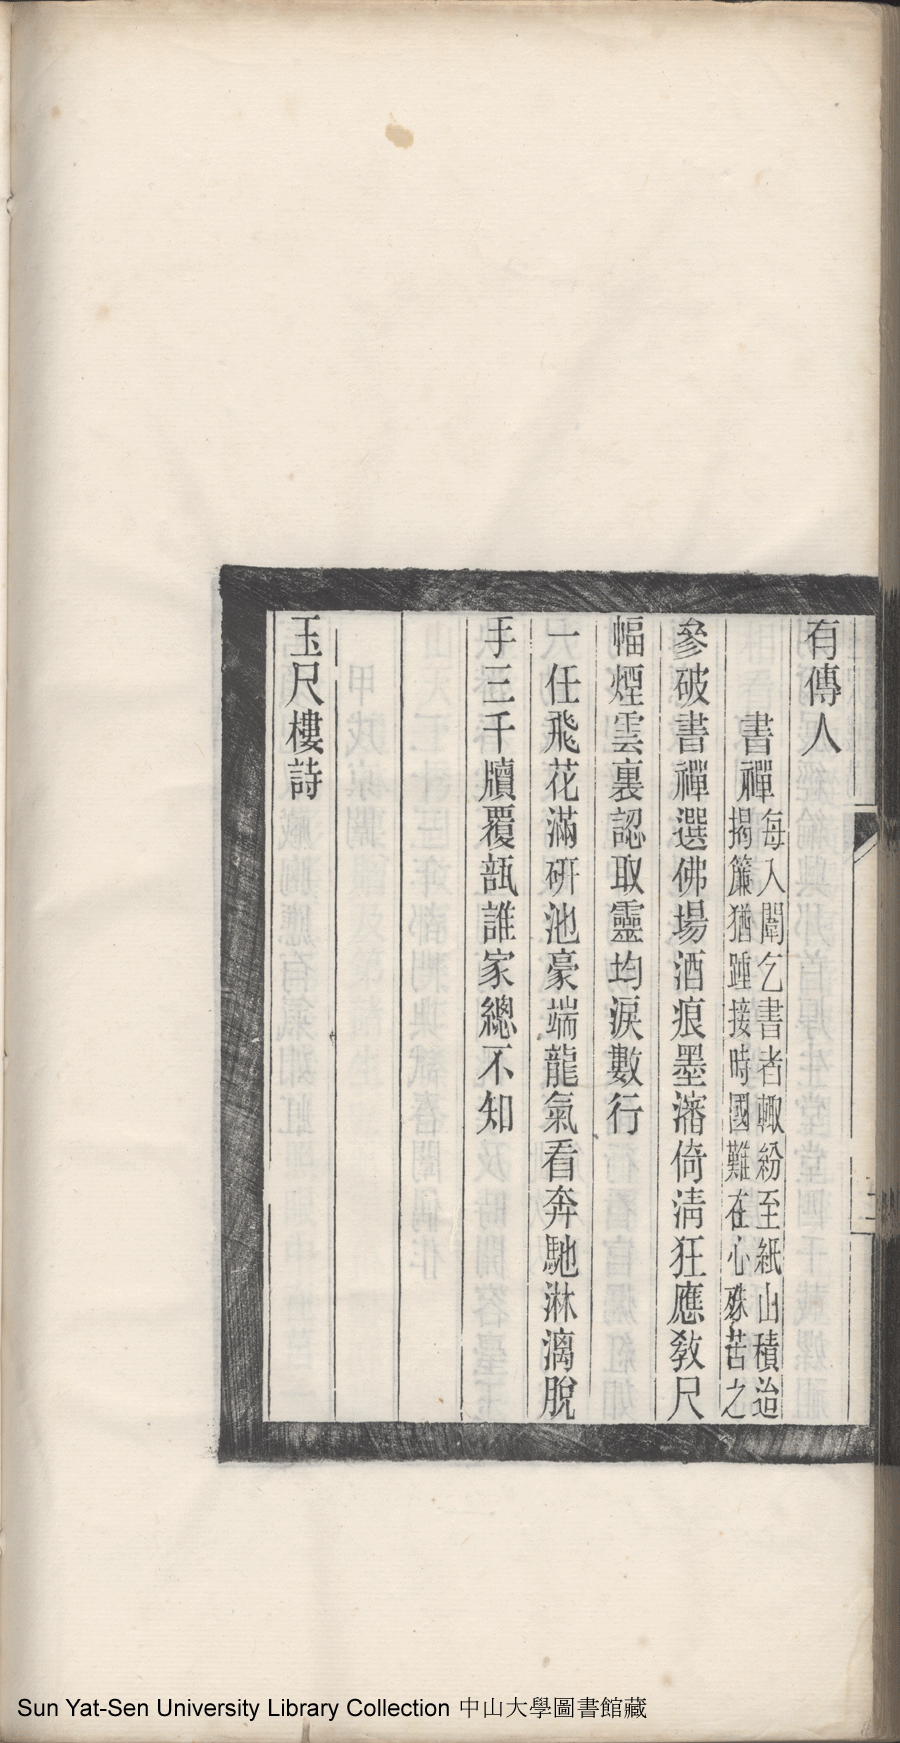 有傳人
書禪
每入闈乞書者輙紛至紙山積迨
揭簾猶踵接時國難在心殊苦之
參破書禪選佛場酒痕墨瀋倚清狂應教尺
幅煙雲裏認取靈均淚數行
一任飛花滿硏池豪端龍氣看奔馳淋漓脫
手三千牘覆瓿誰家總不知
玉尺樓詩
Sun Yat-Sen University Library Collection 中山大學圖書館藏